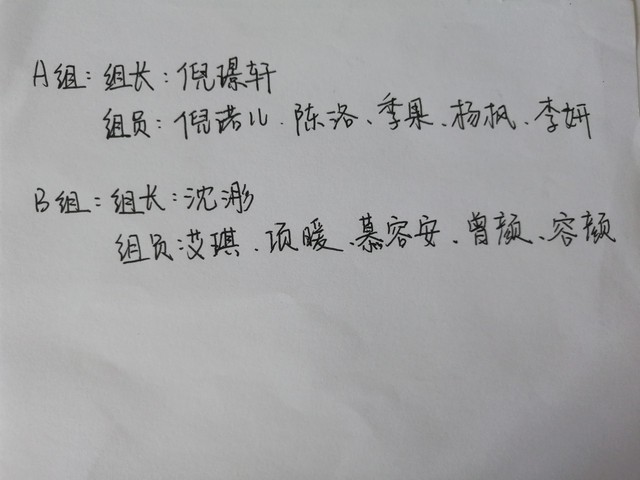 A组：组长：倪璟轩
组员：倪诺儿、陈洛、季果、杨枫、李妍
B组：组长：沈浵
组员：艾琪、项暖、慕容安、曾颜、容颜